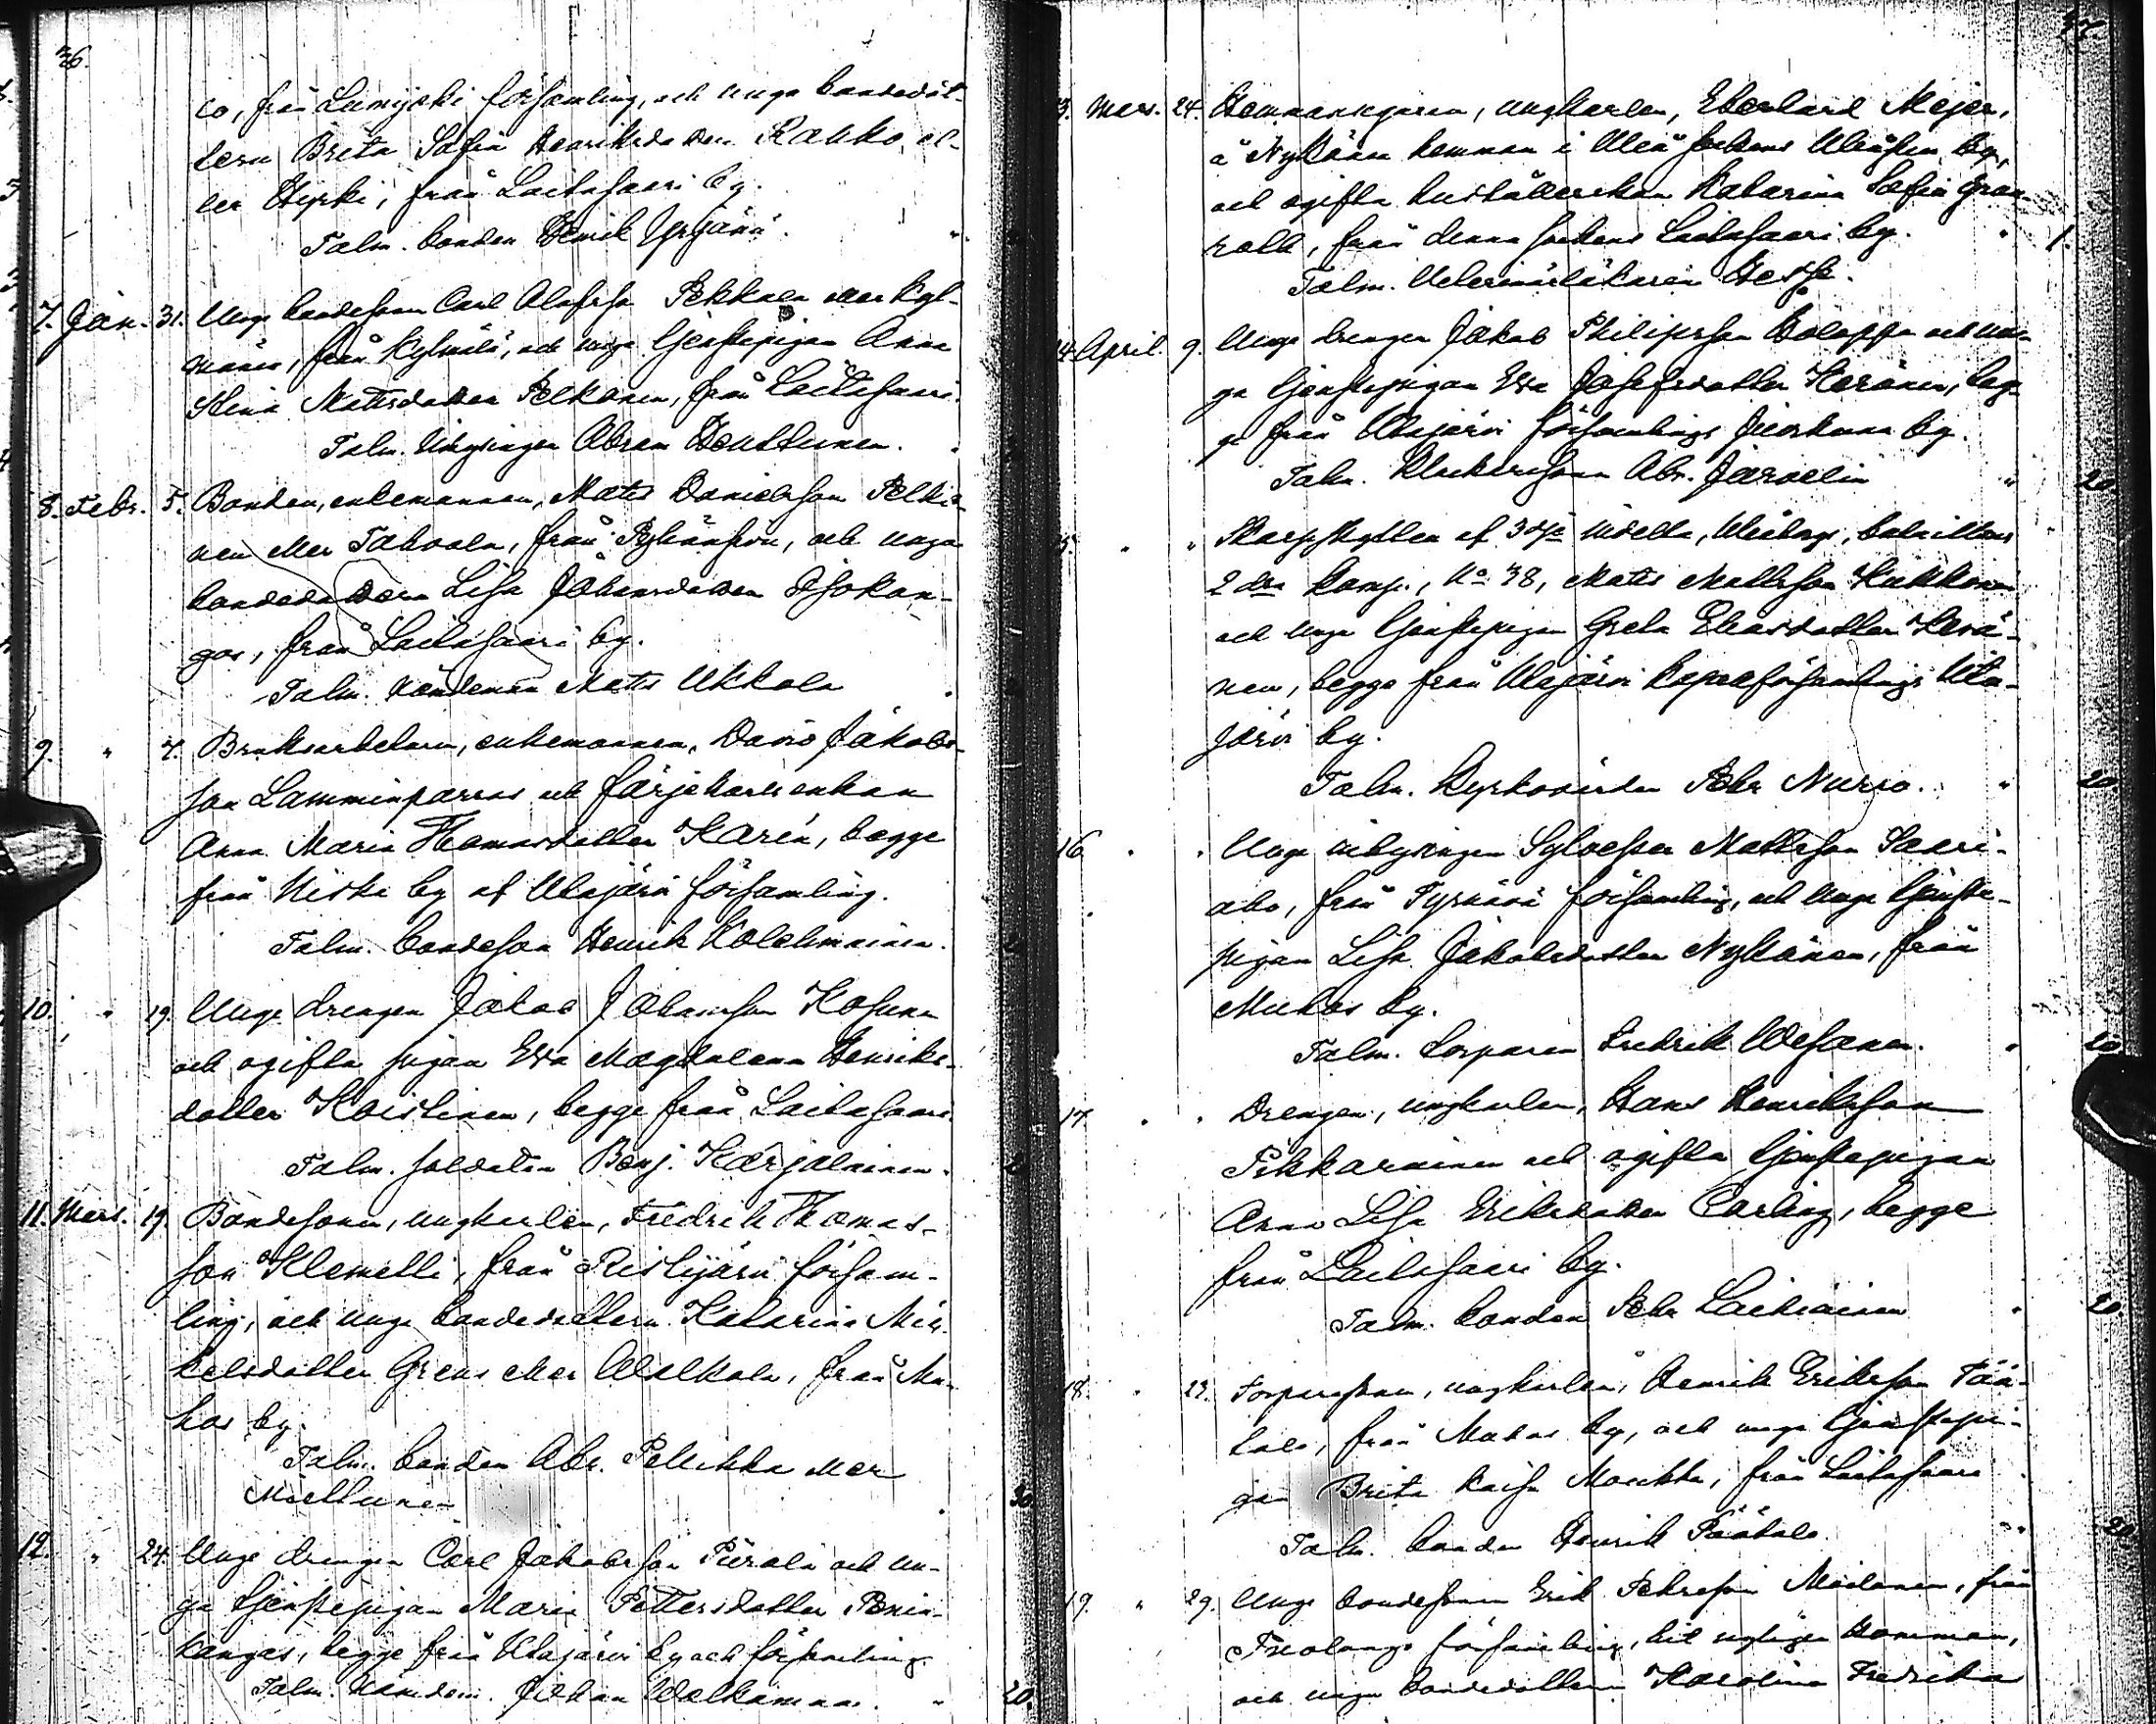 36.
co, från Lumijoki församling, och unga bondedot-
tern Brita Sofia Henriksdotter Raukko el-
ler Hyrki, från Laitasaari by.
Talm. bonden Henrik Yrjänä. "
7. Jan. 31. Unge bondesonen Carl Olofsson Pekkala eller Kyl-
mänen, från Kylmälä, och unga tjenstepigan Anna
Stina Mattsdotter Pelkonen, från Laitasaari.
Talm. Inhysingen Abram Honttunen. "
8. Febr. 5. Bonden, enkemannen, Matts Danielsson Pelko-
nen eller Tahvola, från, och unga
bondedottern Lisa Johansdotter Ojakan-
gas, från Laitasaari by.
Talm. nämdeman Matts Ukkola "
9. " 7. Bruksarbetaren, enkemannen, David Jakobs-
son Lamminparras och färjekarlsenkan
Anna Maria Thomasdotter Karén, begge
från Niska by af Utajärvi församling.
Talm. bondeson Henrik Kolehmainen. 2
10. " 19. Unge drengen Jakob Johansson Kosunen
och ogifta pigan Eva Magdalena Henriks-
dotter Koistinen, begge från Laitasaari.
Talm. soldaten Benj. Karjalainen. 2
11. Mars. 19. Bondesonen, ungkarlen, Fredrik Thomas-
son Klemetti, från Ristijärvi försam-
ling, och unga bondedottern Katarina Mic-
kelsdotter Grens eller Alalkala, från Mu-
hos by.
Talm. bonden Abr. Pellikka eller
Miettunen 30.
12. " 24. Unge drengen Carl Jakobsson Piirala och un-
ga tjenstepigan Maria Pettersdotter Ponin-
kangas, begge från Utajärvi by och församling
Talm. Nämdem. Johan Walkamaa. " 20.
47.
13. Mars. 24. Hemmansegaren, ungkarlen, Eberhard Mejer,
å Nykänen hemman i Uleå sockens by,
och ogifta hushållerskan Katarina Sofia Gran-
roth, från denna sockens Laitasaari by. " 1.
Talm. Veterinärläkaren Hesse.
14 April. 9. Unge drengen Jakob Philipsson Holappa och un-
ga tjenstepigan Eva Josefsdotter Keränen, beg-
ge från Utajärvi församlings Juorkuna by.
Talm. Klockarsonen Abr. Jarvelin " 20
15. " " Skarpskytten af 3dje indelta, Uleåborgs, bataillons
2dra komp., No 38, Matts Mattsson Kukkonen
och unga tjenstepigan Greta Eliasdotter Kerä-
nen, begge från Utajärvi kapellförsamlings Uta-
järvi by.
Talm. Kyrkovärden Petr Nurro. " 20
16 " " Unge inhysingen Sylvester Mattsson Saari-
aho, från Tyrnävä församling, och unga tjenste-
pigan Lisa Jakobsdotter Nykänen, från
Muhos by.
Talm. torparen Fredrik Wesanen. " 20
17 " " Drengen, ungkarlen, Hans Henriksson
Pikkarainen och ogifta tjenstepigan
Anna Lisa Eriksdotter Carling, begge
från Laitasaari by.
Talm. bonden Petr Laitinen " 20
18. " 23. Torparesonen, ungkarlen, Henrik Eriksson Pää-
talo, från Muhos by, och unga tjenstepi-
gan Brita Kaisa Moukka, från Laitasaari.
Talm. bonden Henrik Päätalo. " 20
19. " 29. Unge bondesonen Erik Petersson Moilanen, från
församling, hit nyligen kommen,
och unga bondedottern Karolina Fredrika